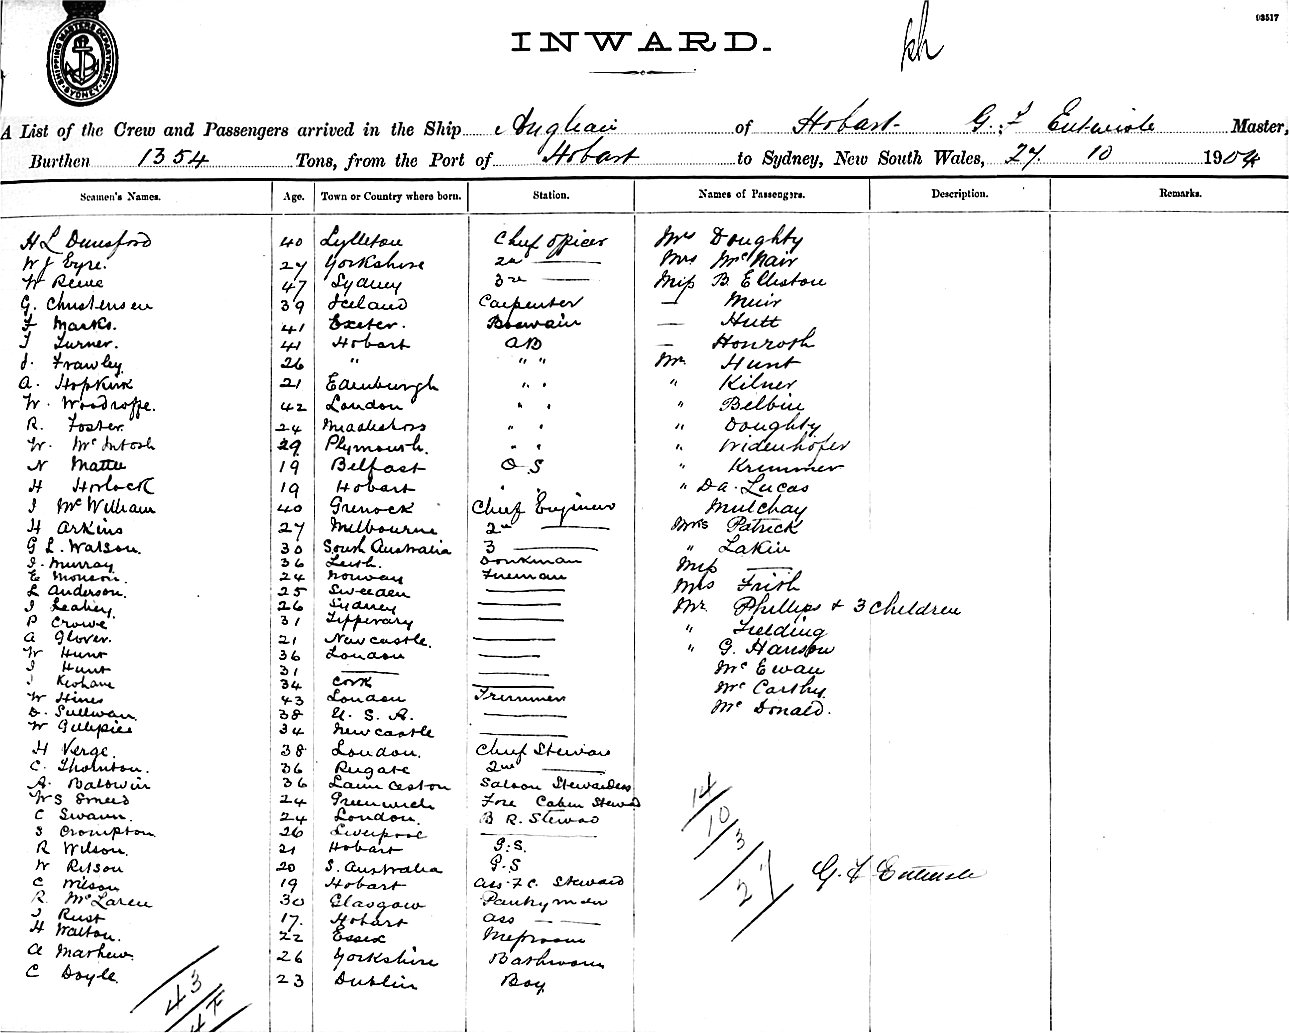 SHIPPING MASTERS DEPARTMENT SYDNEY
03517
INWARD.
A List of the Crew and Passengers arrived in the Ship Anglian of Hobart G. Entwisle Master,
Burthen 1354 Tons, from the Port of Hobart to Sydney, New South Wales, 27. 10 1904
Seamen's Names. Age. Town or Country where born. Station. Names of Passengers. Description. Remarks.
H L Dunsford 40 Lyttleton Chief Officer Mrs Doughty
W J Eyre. 27 Yorkshire 2nd —— Mrs McNair
W Reeve 47 Sydney 3rd —— Miss B Elliston
G. Christensen 39 Iceland Carpenter — Muir
F Marks. 41 Exeter. Boswain — Hutt
T Turner. 41 Hobart AB — Honrosh
J. Frawley 26 " " " Mr. Hunt
A. Hopkirk 21 Edinburgh " " " Kilner
W. Woodroffe. 42 London " " " Belbin
R. Foster. 24 " " " Doughty
W. McIntosh 29 Plymouth. " " " Widenhofer
N Mattee 19 Belfast O S " Krimmer
H Horlock 19 Hobart " " " Da. Lucas
J McWilliam 40 Grenock Chief Engineer Mulchay
H Arkins 27 Milbourne 2nd —— Mrs Patrick
G L. Watson. 30 South Australia 3 —— " Lakin
J. Murray 36 Leith. Donkman Miss ——
E Monson. 24 Norway Fireman Mrs Frish
L Anderson. 25 Sweeden —— Mr. Phillips + 3 children
J Leahey 26 Sydney —— " Fielding
P Crowe 31 Tipperary —— " G. Hanson
A Glover. 21 Newcastle. —— McEwan
W Hunt 36 London —— McCarthy
J Hunt 31 —— —— McDonald.
J Keohane 34 Cork ——
W Hines 43 London Trimmer
D. Sullivan 38 U. S. A. ——
W Gillepies 34 Newcastle ——
H Verge. 38 London. Chief Steward
C. Thornton. 36 Rugate 2nd ——
A. Baldwin 36 Launceston Saloon Stewardess
W S Smeed 24 Greenwich Fore Cabin Steward
C Swann. 24 London. B R. Steward
S Crompton 26 Liverpool ——
R Wilson. 21 Hobart G.S.
W Retson 20 S. Australia G.S
C Wilson 19 Hobart Ass F.C. Steward
R. McLaren 30 Glasgow Pantryman
J Rust 17. Hobart Ass ——
H Walton. 22 Essex Messroom
A Mathew. 26 Yorkshire Bathroom
C Doyle. 23 Dublin Boy
14
10
3
27
43